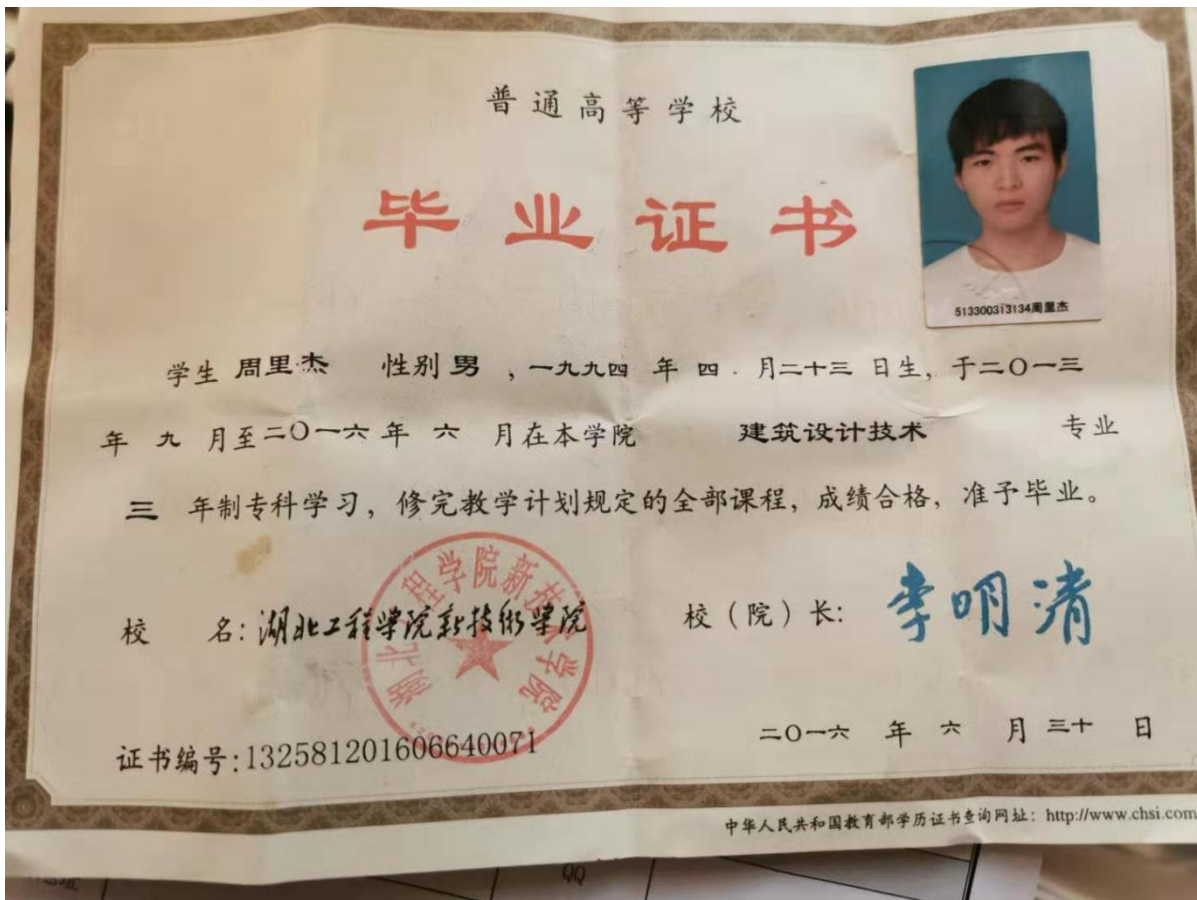 普通高等学校
毕业证书
513300313134周里杰
学生 周里杰 性别 男 ，一九九四 年 四 月二十三 日生，于二〇一三
年 九 月至二〇一六 年 六 月在本学院 建筑设计技术 专业
三 年制专科学习，修完教学计划规定的全部课程，成绩合格，准予毕业。
校 名：湖北工程学院新技術学院 校（院）长：李明清
湖北工程学院新技术学院
二〇一六 年 六 月 三十 日
证书编号:132581201606640071
中华人民共和国教育部学历证书查询网址：http://www.chsi.com
QQ